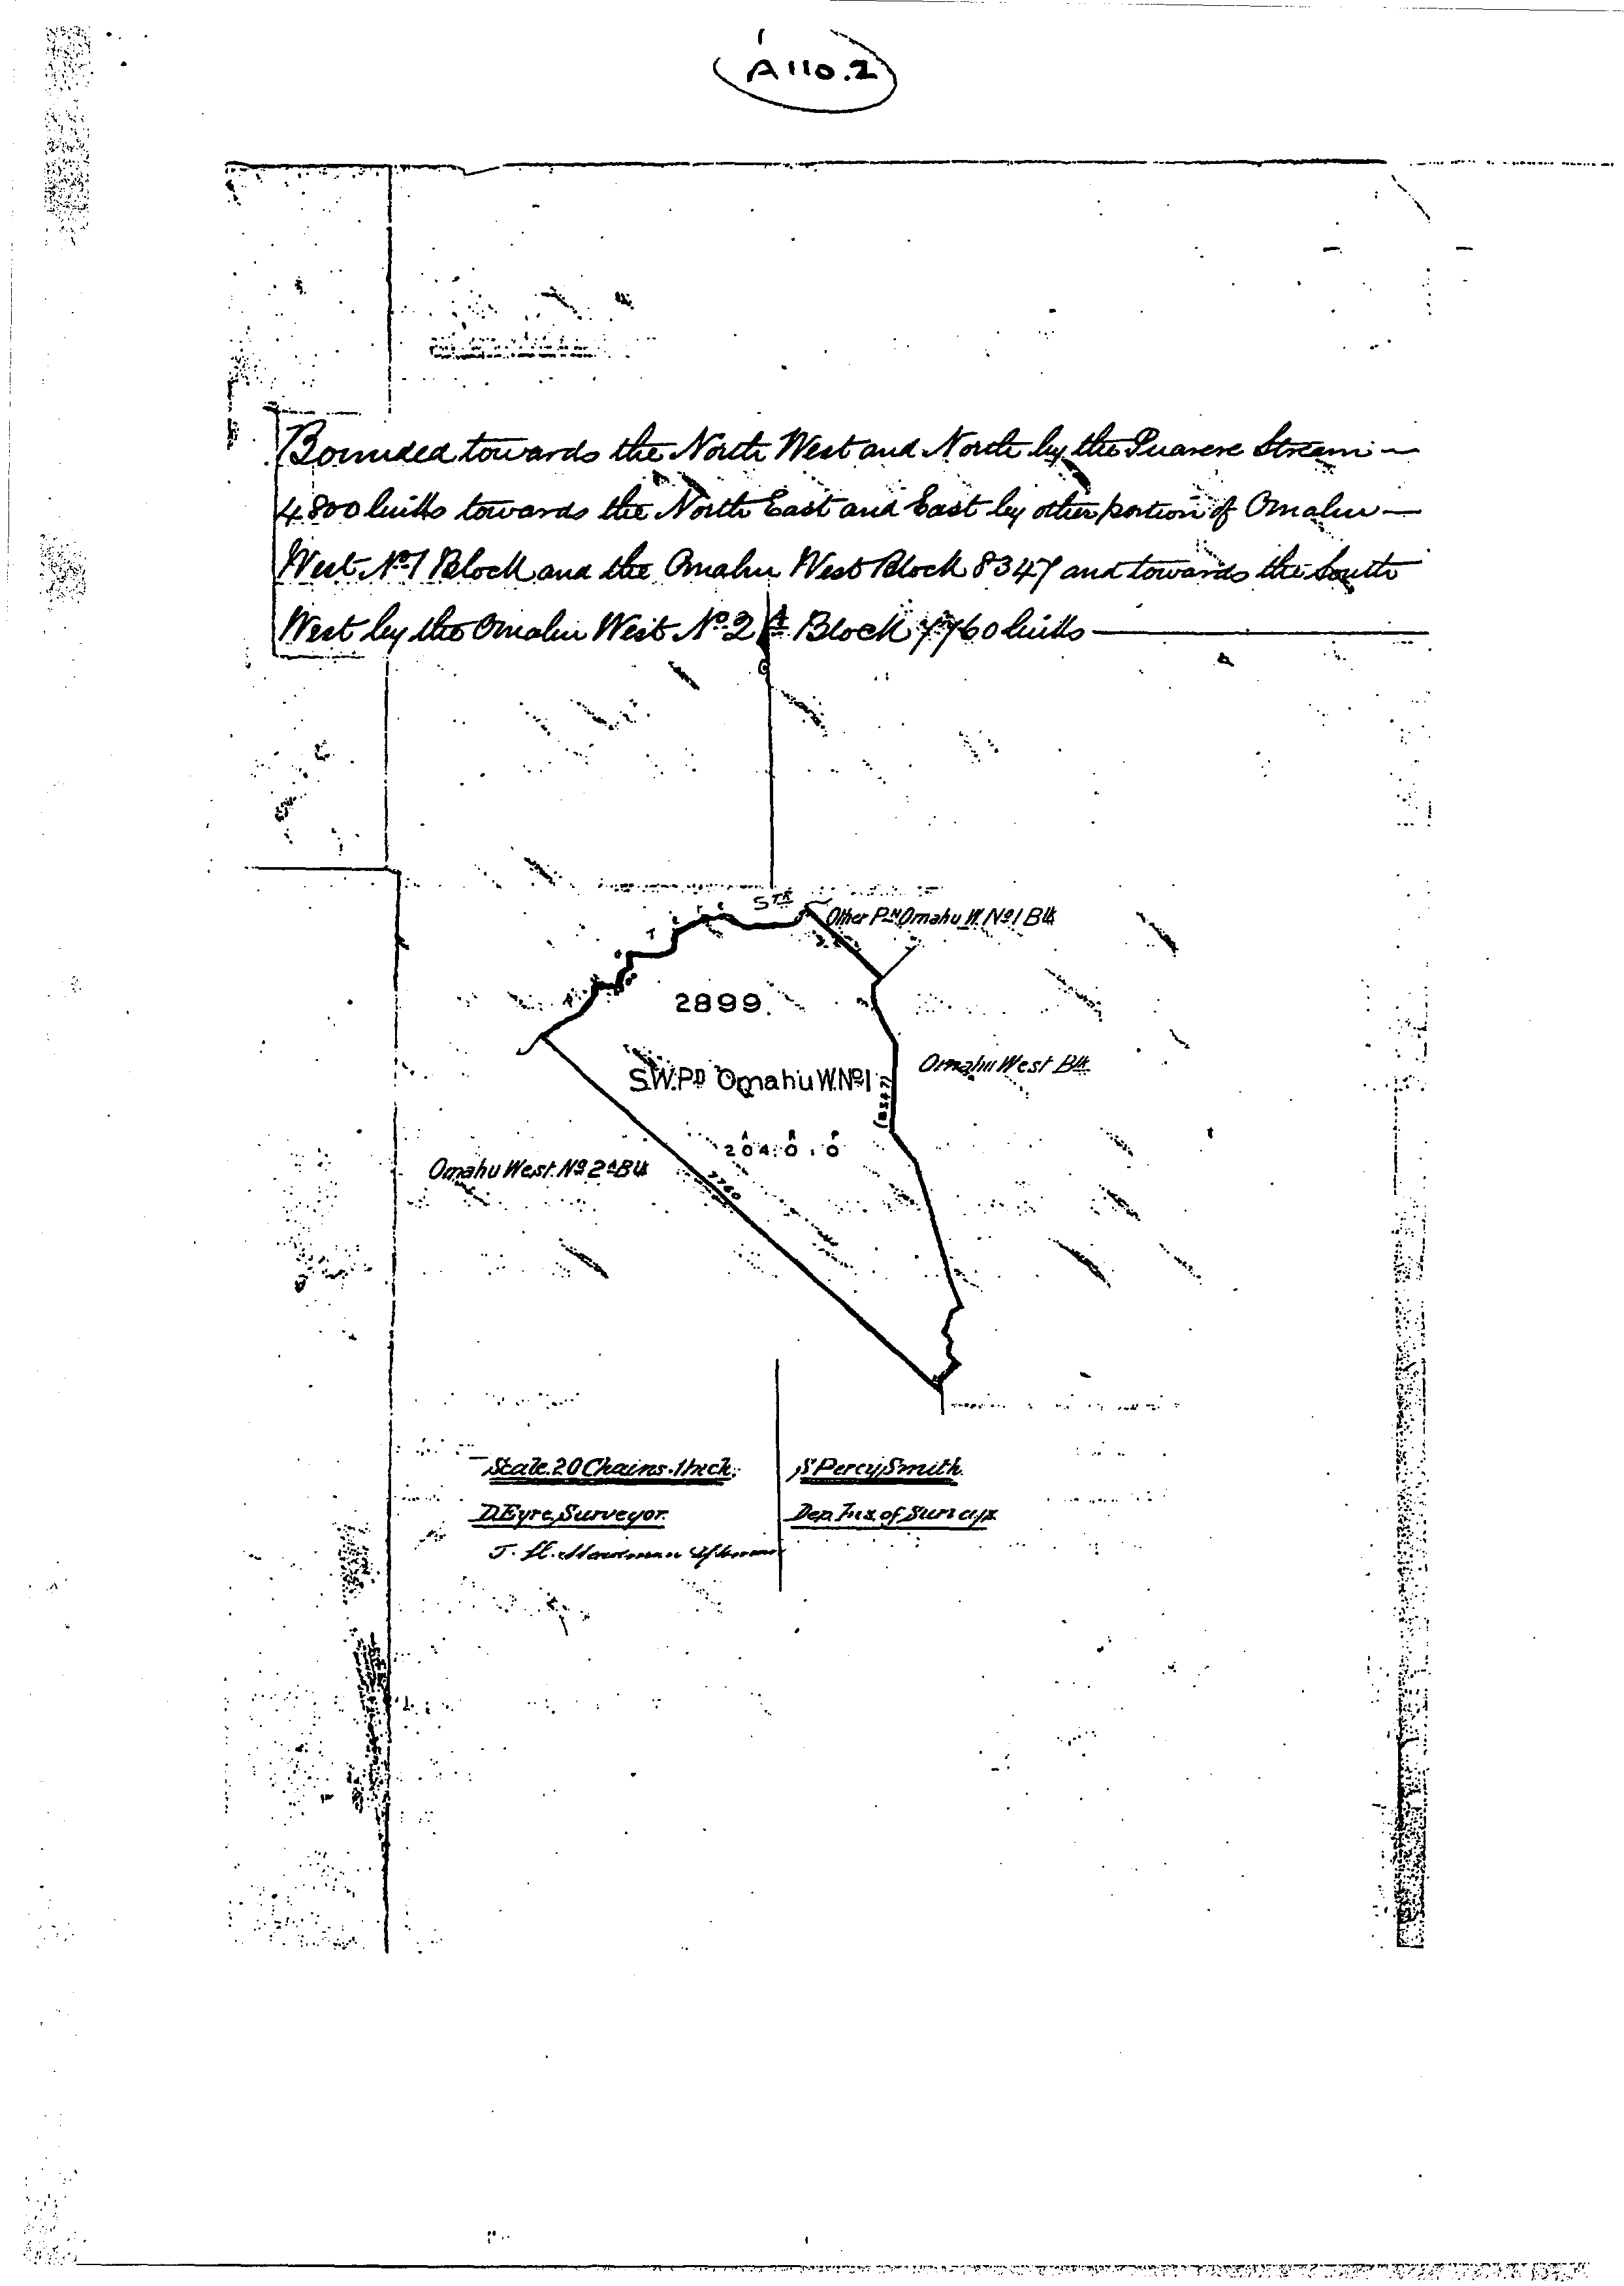 A110.2
Bounded towards the North West and North by the Puarere Stream —
4800 links towards the North East and East by other portion of Omahu —
West No. 1 Block and the Omahu West Block 8347 and towards the South
West by the Omahu West No. 2A Block 7760 links —
STR
Other Pn Omahu W. No 1 Blk
2899
Omahu West Blk
S.W. Pn Omahu W. No 1
(8347)
A R P
204:0:0
Omahu West No 2A Blk
7760
Scale 20 Chains. 1 Inch.
S Percy Smith
D. Eyre, Surveyor.
Dep. Ins. of Surveys